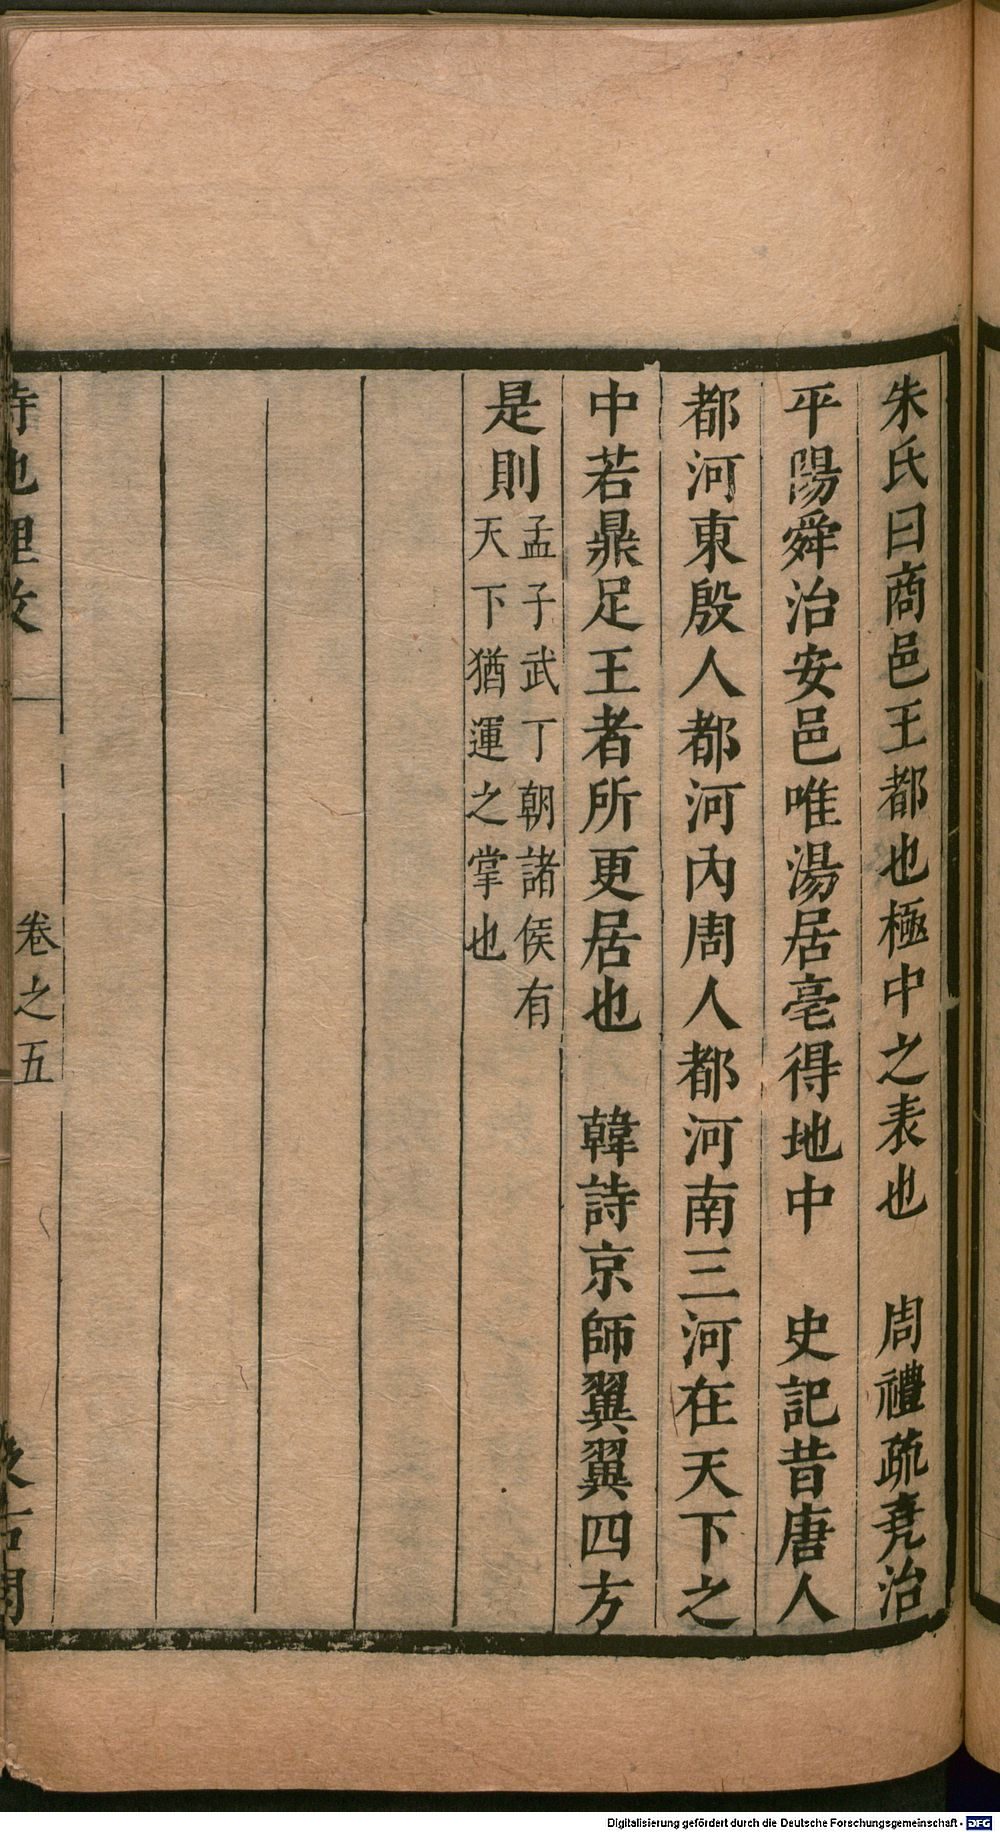 朱氏曰商邑王都也極中之表也　周禮疏堯治
平陽舜治安邑唯湯居亳得地中　史記昔唐人
都河東殷人都河內周人都河南三河在天下之
中若鼎足王者所更居也　韓詩京師翼翼四方
是則
孟子武丁朝諸侯有
天下猶運之掌也
詩地理攷
卷之五
汲古閣
Digitalisierung gefördert durch die Deutsche Forschungsgemeinschaft - DFG